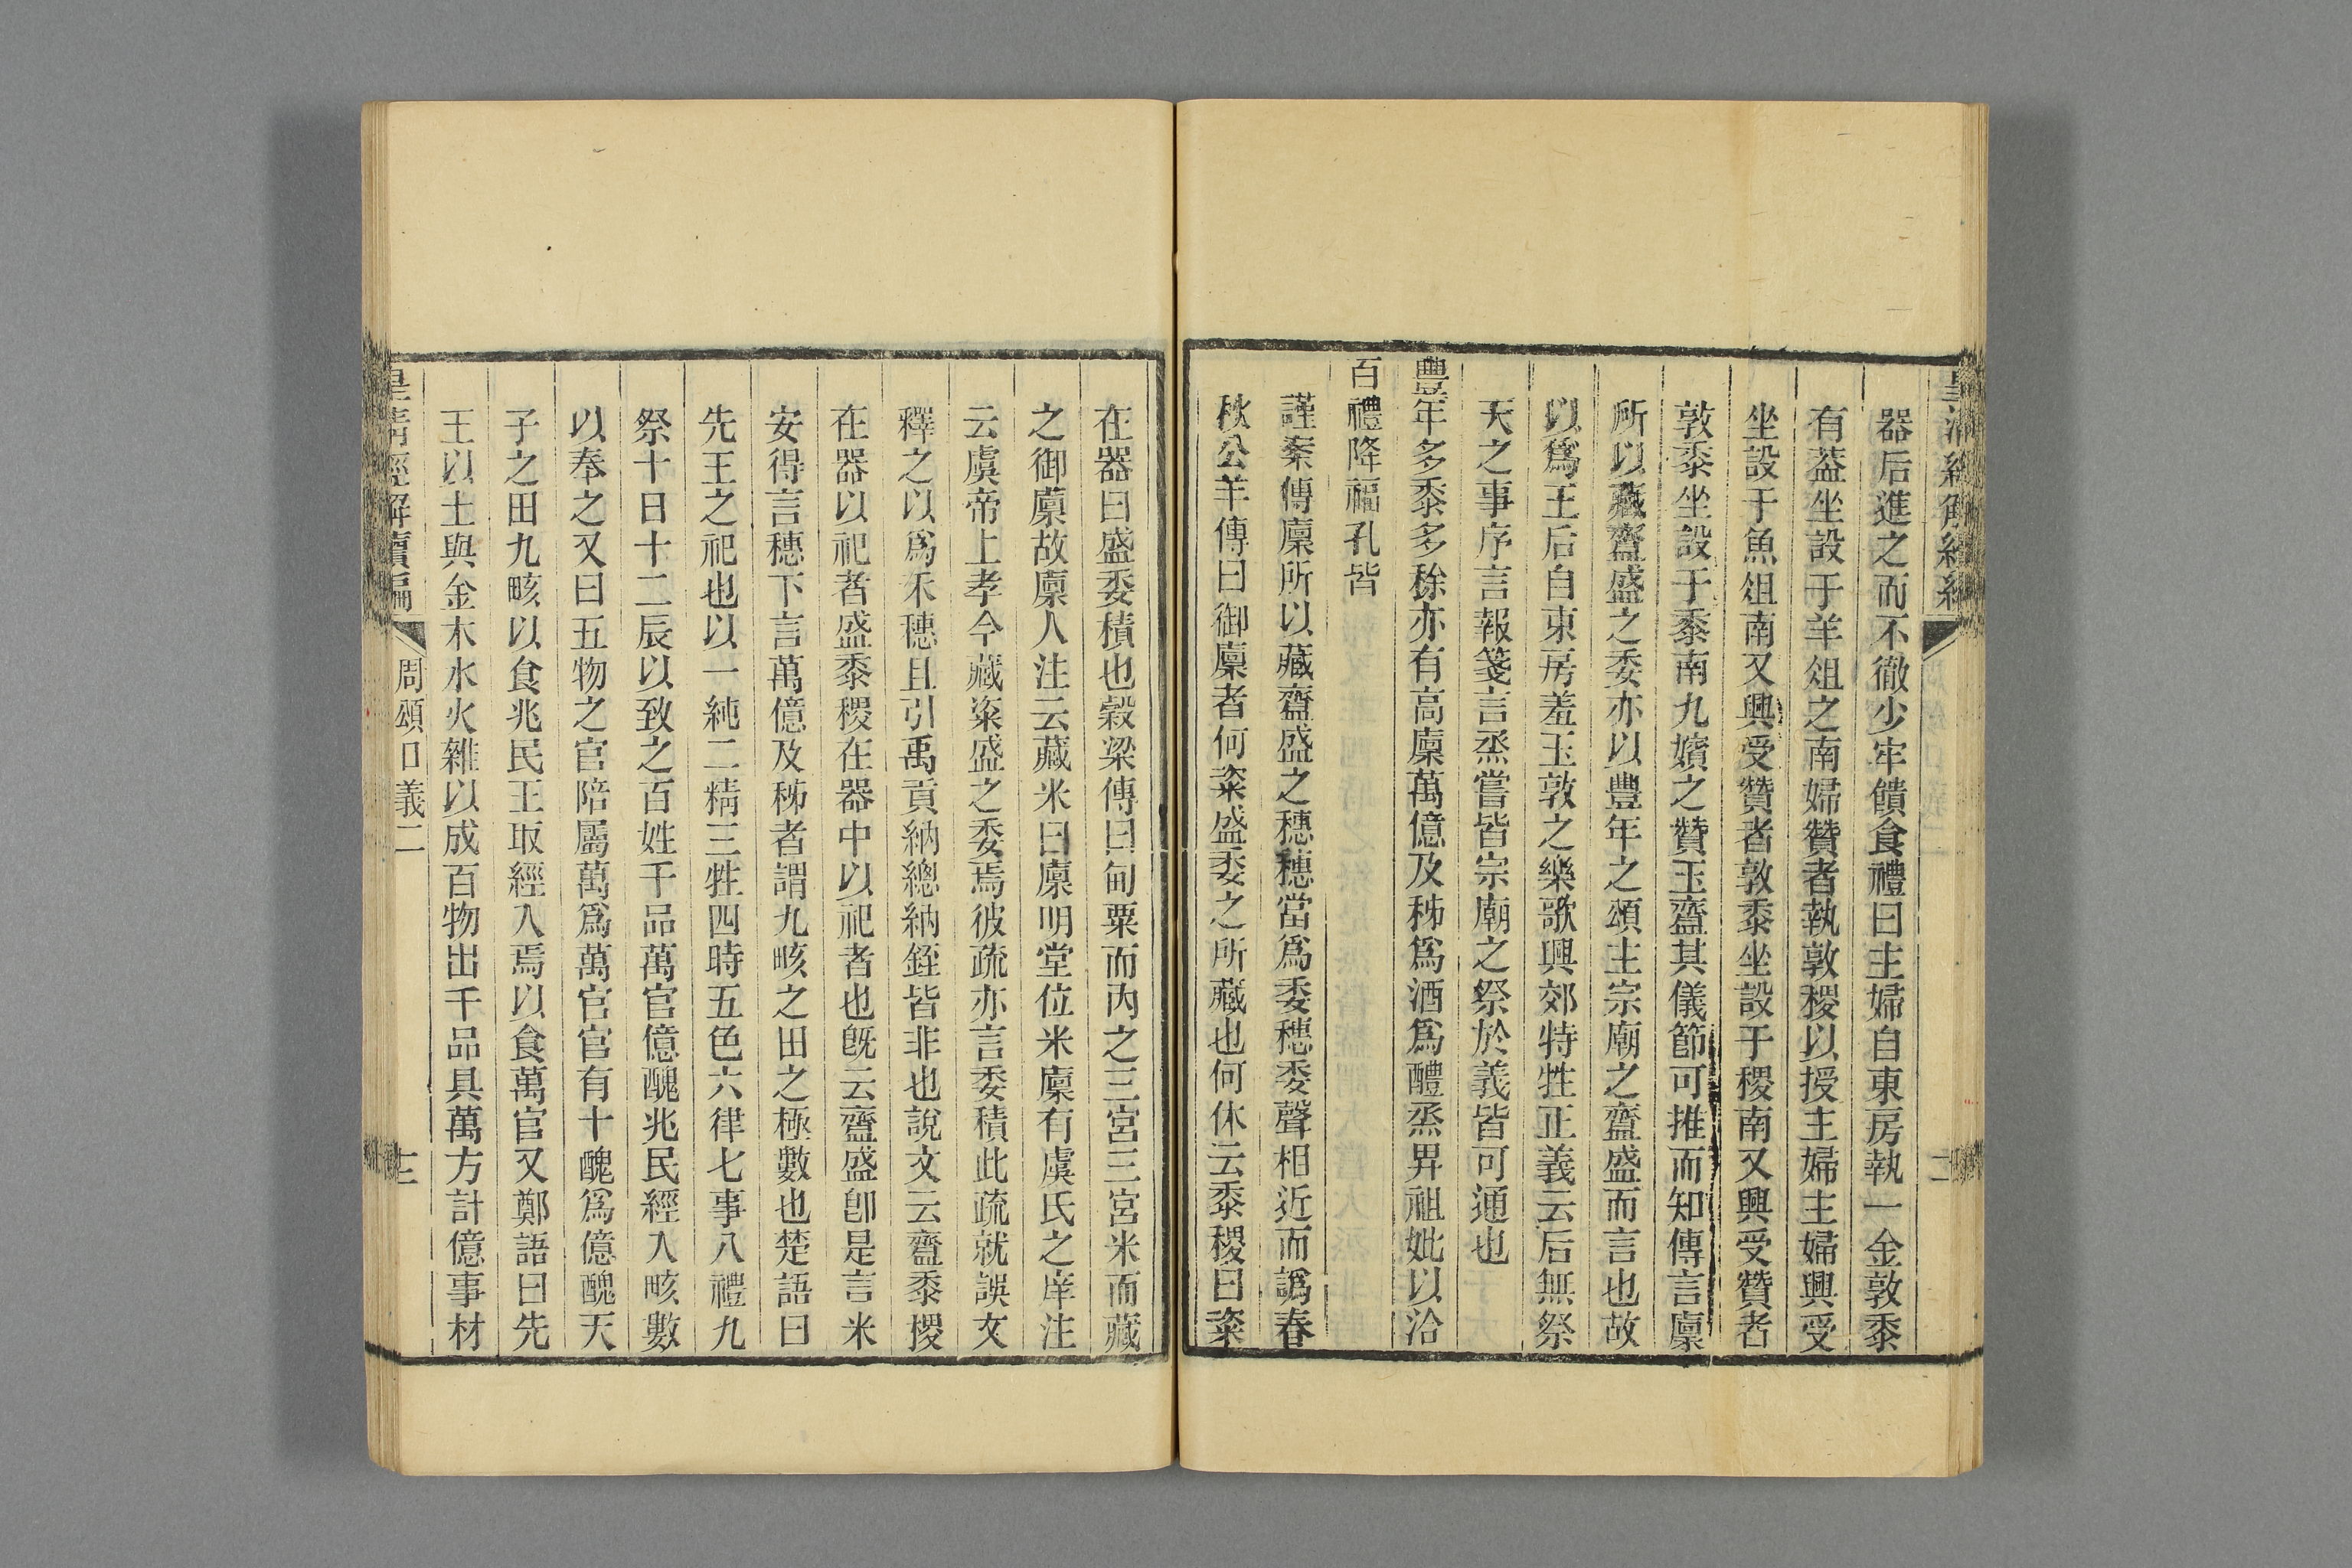 器后進之而不徹少牢饋食禮曰主婦自東房執一金敦黍
有葢坐設于羊俎之南婦贊者執敦稷以授主婦主婦興受
坐設于魚俎南又興受贊者敦黍坐設于稷南又興受贊者
敦黍坐設于黍南九嬪之贊玉齍其儀節可推而知傳言廩
所以藏齍盛之委亦以豐年之頌主宗廟之齍盛而言也故
以爲王后自東房羞玉敦之樂歌興郊特牲正義云后無祭
天之事序言報箋言烝嘗皆宗廟之祭於義皆可通也
豐年多黍多稌亦有高廩萬億及秭爲酒爲醴烝畀祖妣以洽
百禮降福孔皆
謹案傳廩所以藏齍盛之穗穗當爲委穗委聲相近而譌春
秋公羊傳曰御廩者何粢盛委之所藏也何休云黍稷曰粢
在器曰盛委積也穀梁傳曰甸粟而內之三宮三宮米而藏
之御廩故廩人注云藏米曰廩明堂位米廩有虞氏之庠注
云虞帝上孝今藏粢盛之委焉彼疏亦言委積此疏就誤文
釋之以爲禾穗且引禹貢納總納銍皆非也說文云齍黍稷
在器以祀者盛黍稷在器中以祀者也旣云齍盛卽是言米
安得言穗下言萬億及秭者謂九畡之田之極數也楚語曰
先王之祀也以一純二精三牲四時五色六律七事八禮九
祭十日十二辰以致之百姓千品萬官億醜兆民經入畡數
以奉之又曰五物之官陪屬萬爲萬官官有十醜爲億醜天
子之田九畡以食兆民王取經入焉以食萬官又鄭語曰先
王以土與金木水火雜以成百物出千品具萬方計億事材
皇清經解續編
周頌口義二